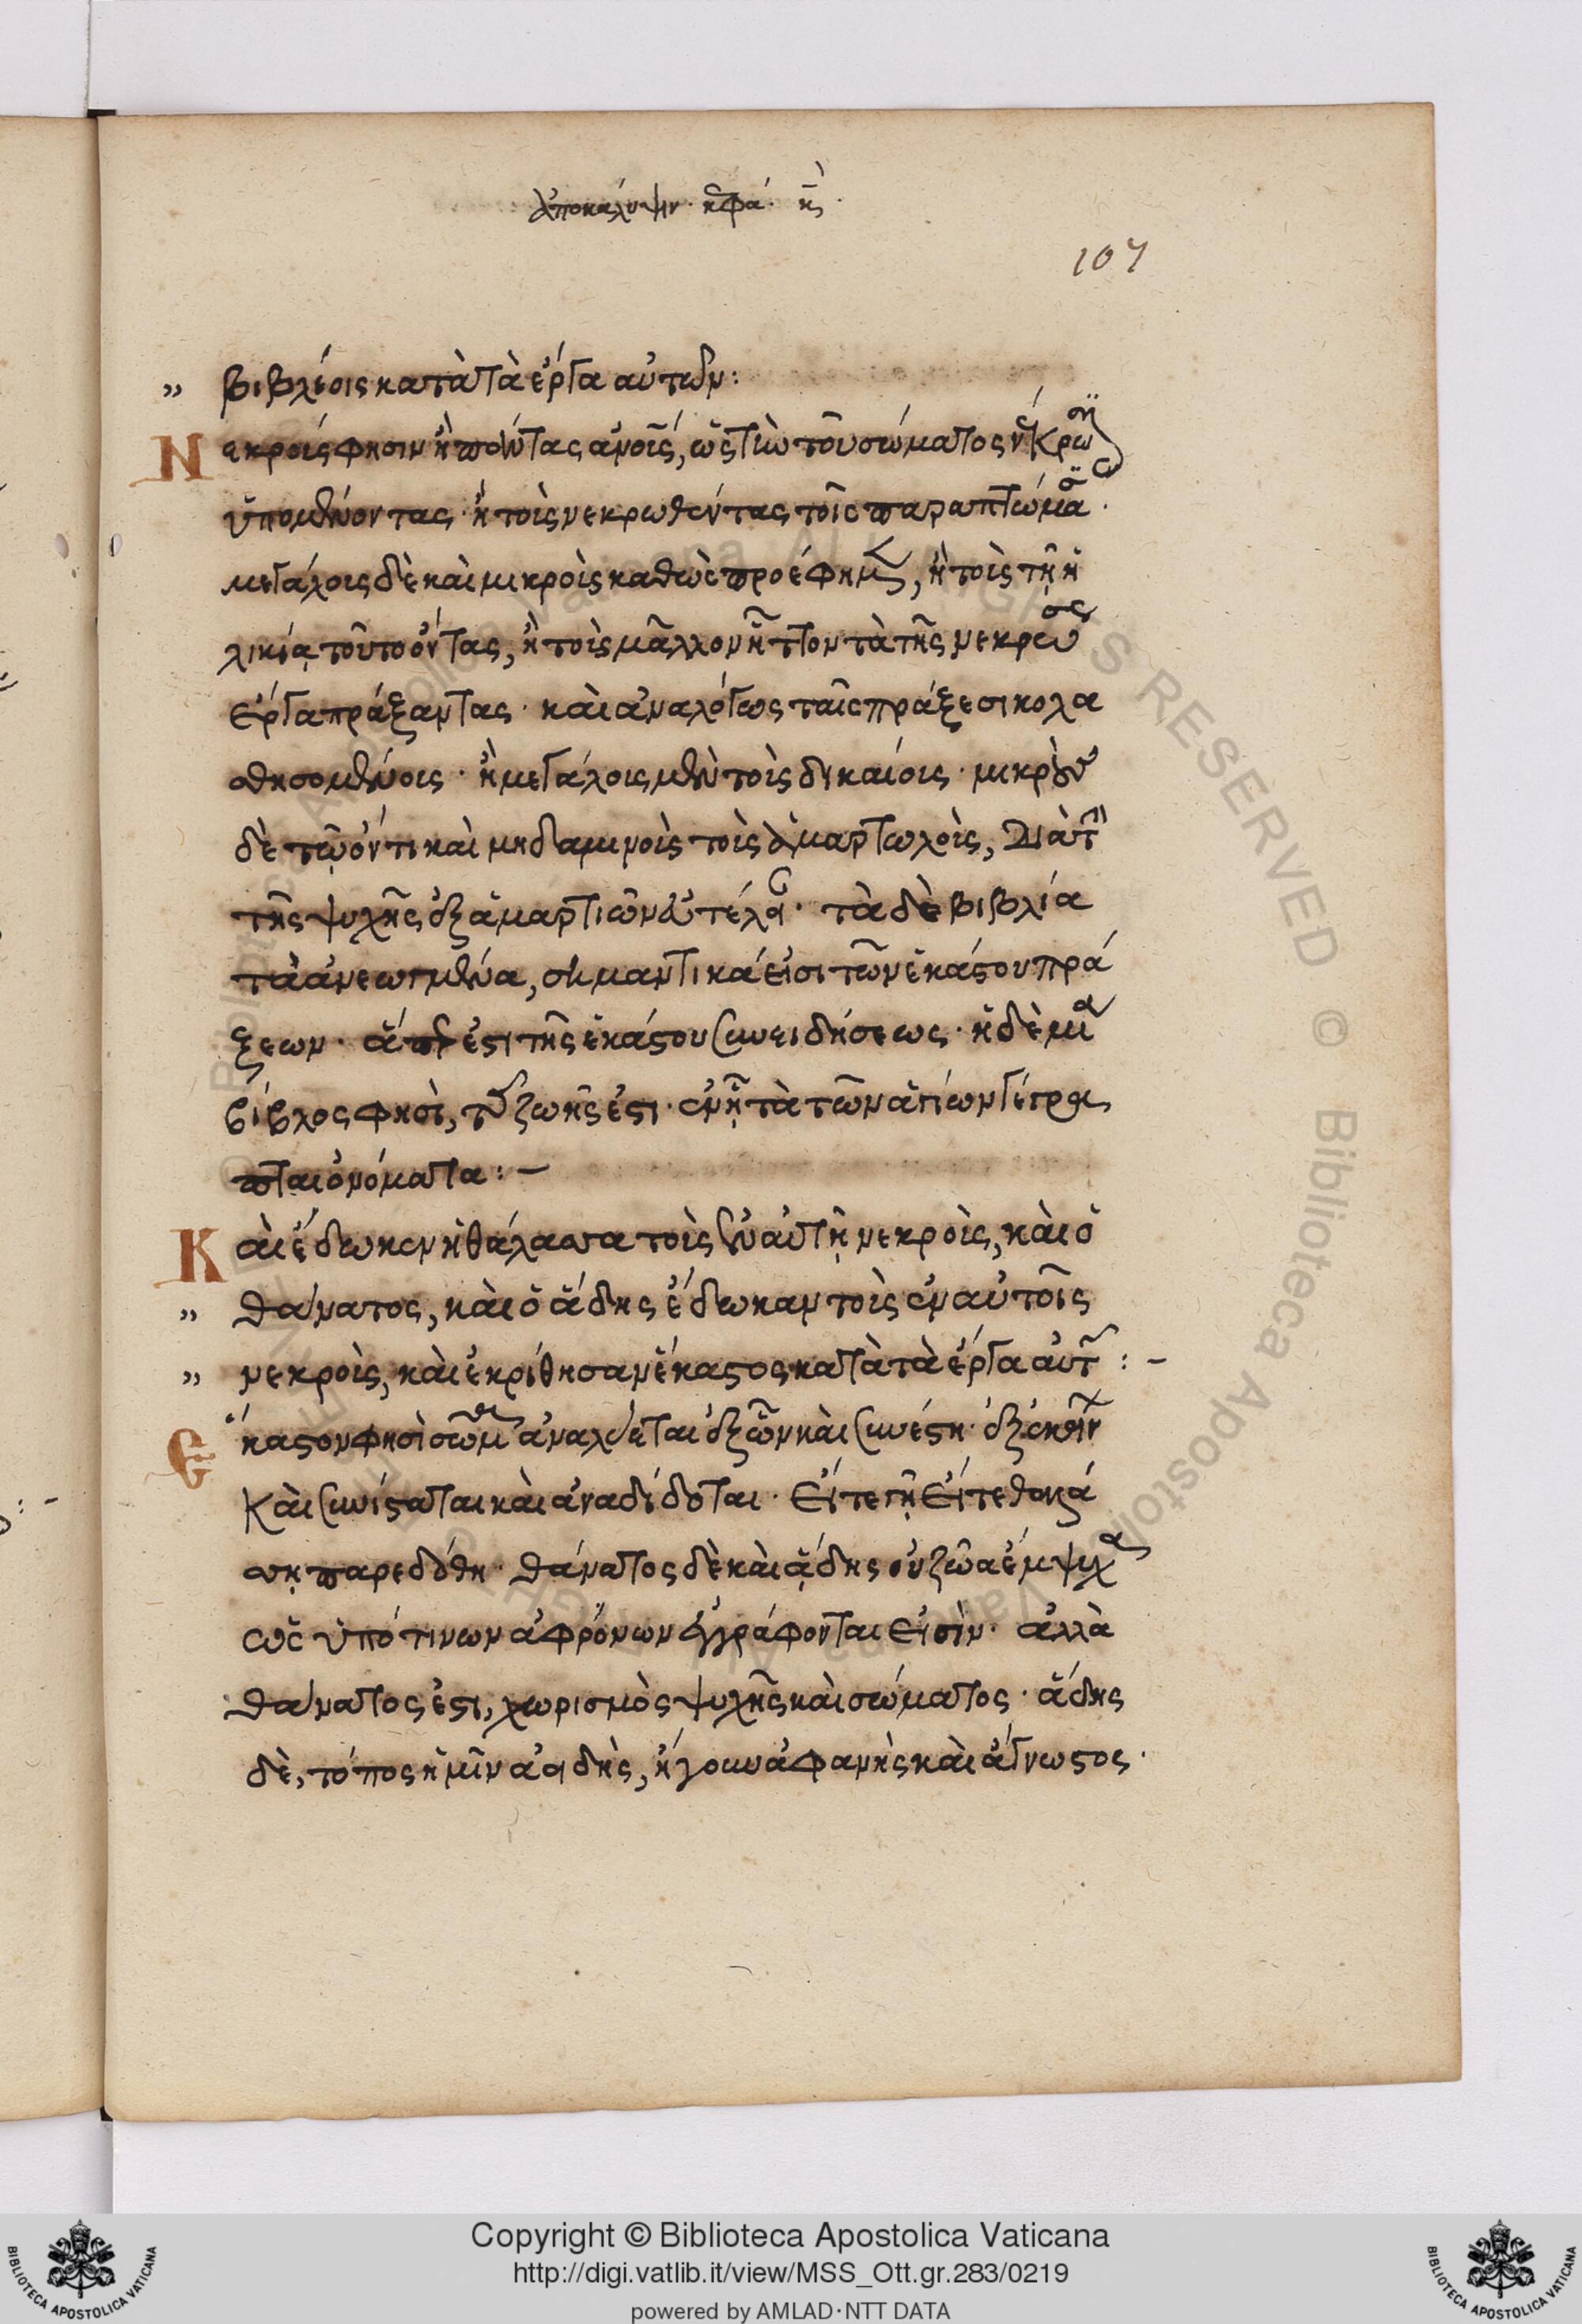 ἀποκαλύψιν. κεφά. κς.
107
" βιβλίοις κατὰ τὰ ἔργα αὐτῶν:
Νεκροὺς φησιν ἢ πάντας ἀνοῖς, ὡς τὴν τοῦ σώματος νέκρωσιν
ὑπομένοντας. ἢ τοὺς νεκρωθέντας τοῖς παραπτώμασι.
μεγάλοις δὲ καὶ μικροῖς καθὼς προέφημεν, ἢ τοὺς τῇ ἡ
λικίᾳ τοῦτο ὄντας, ἢ τοὺς μᾶλλον ἧττον τὰ τῆς νεκρώσεως
ἔργα πράξαντας. καὶ ἀναλόγως ταῖς πράξεσι κολα
σθησομένοις. ἢ μεγάλοις μὲν τοῖς δικαίοις. μικροῖς
δὲ τῷ ὄντι καὶ μηδαμινοῖς τοῖς ἁμαρτωλοῖς, διὰ τὴν
τῆς ψυχῆς ἐξ ἁμαρτιῶν εὐτέλειαν. τὰ δὲ βιβλία
τὰ ἀνεωγμένα, σημαντικά εἰσι τῶν ἑκάστου πρά
ξεων. ἅπερ ἐστι τῆς ἑκάστου συνειδήσεως. ἡ δὲ μία
βίβλος φησὶ, τῆς ζωῆς ἐστι. ἐν ᾗ τὰ τῶν ἁγίων γέγρα
πται ὀνόματα:-
Καὶ ἔδωκεν ἡ θάλασσα τοὺς ἐν αὐτῇ νεκροὺς, καὶ ὁ
" θάνατος, καὶ ὁ ἅδης ἔδωκαν τοὺς ἐν αὐτοῖς
" νεκροὺς, καὶ ἐκρίθησαν ἕκαστος κατὰ τὰ ἔργα αὐτῶν:-
Ἕκαστον φησὶ σῶμα ἀναλύεται ἐξ ὧν καὶ συνέστη. ἐξ ἐκείνων
καὶ συνίσταται καὶ ἀναδίδοται. εἴτε γῇ εἴτε θαλά
σσῃ παρεδόθη. θάνατος δὲ καὶ ᾅδης οὐ ζῶα ἔμψυχα
ὡς ὑπό τινων ἀφρόνων ἐγγράφονται εἰσὶν. ἀλλὰ
θάνατος ἐστι, χωρισμὸς ψυχῆς καὶ σώματος. ἅδης
δὲ, τόπος ἡμῖν ἀειδὴς, ἤγουν ἀφανὴς καὶ ἄγνωστος.
Copyright © Biblioteca Apostolica Vaticana
http://digi.vatlib.it/view/MSS_Ott.gr.283/0219
powered by AMLAD·NTT DATA